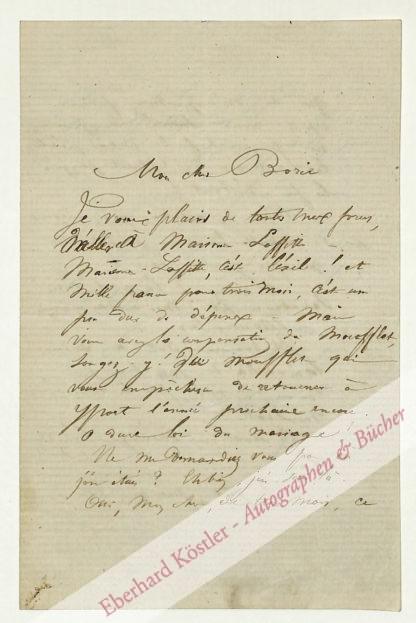 Mon cher Borie
Je vous plains de toutes mes forces,
d'aller à Maisons-Laffitte
Maisons-Laffitte, c'est l'exil ! et
Mille francs pour trois mois, c'est un
peu dur de dépense - Mais
vous avez la compensation du Moufflet,
songez-y ! Moufflet qui
vous empêchera de retourner à
Yport l'année prochaine encore.
O dure loi du mariage !
Ne me demandiez vous pas
j'en étais ? Eh bien j'en
Oui, Mon cher, mois, ce
Eberhard Köstler - Autographen & Bücher